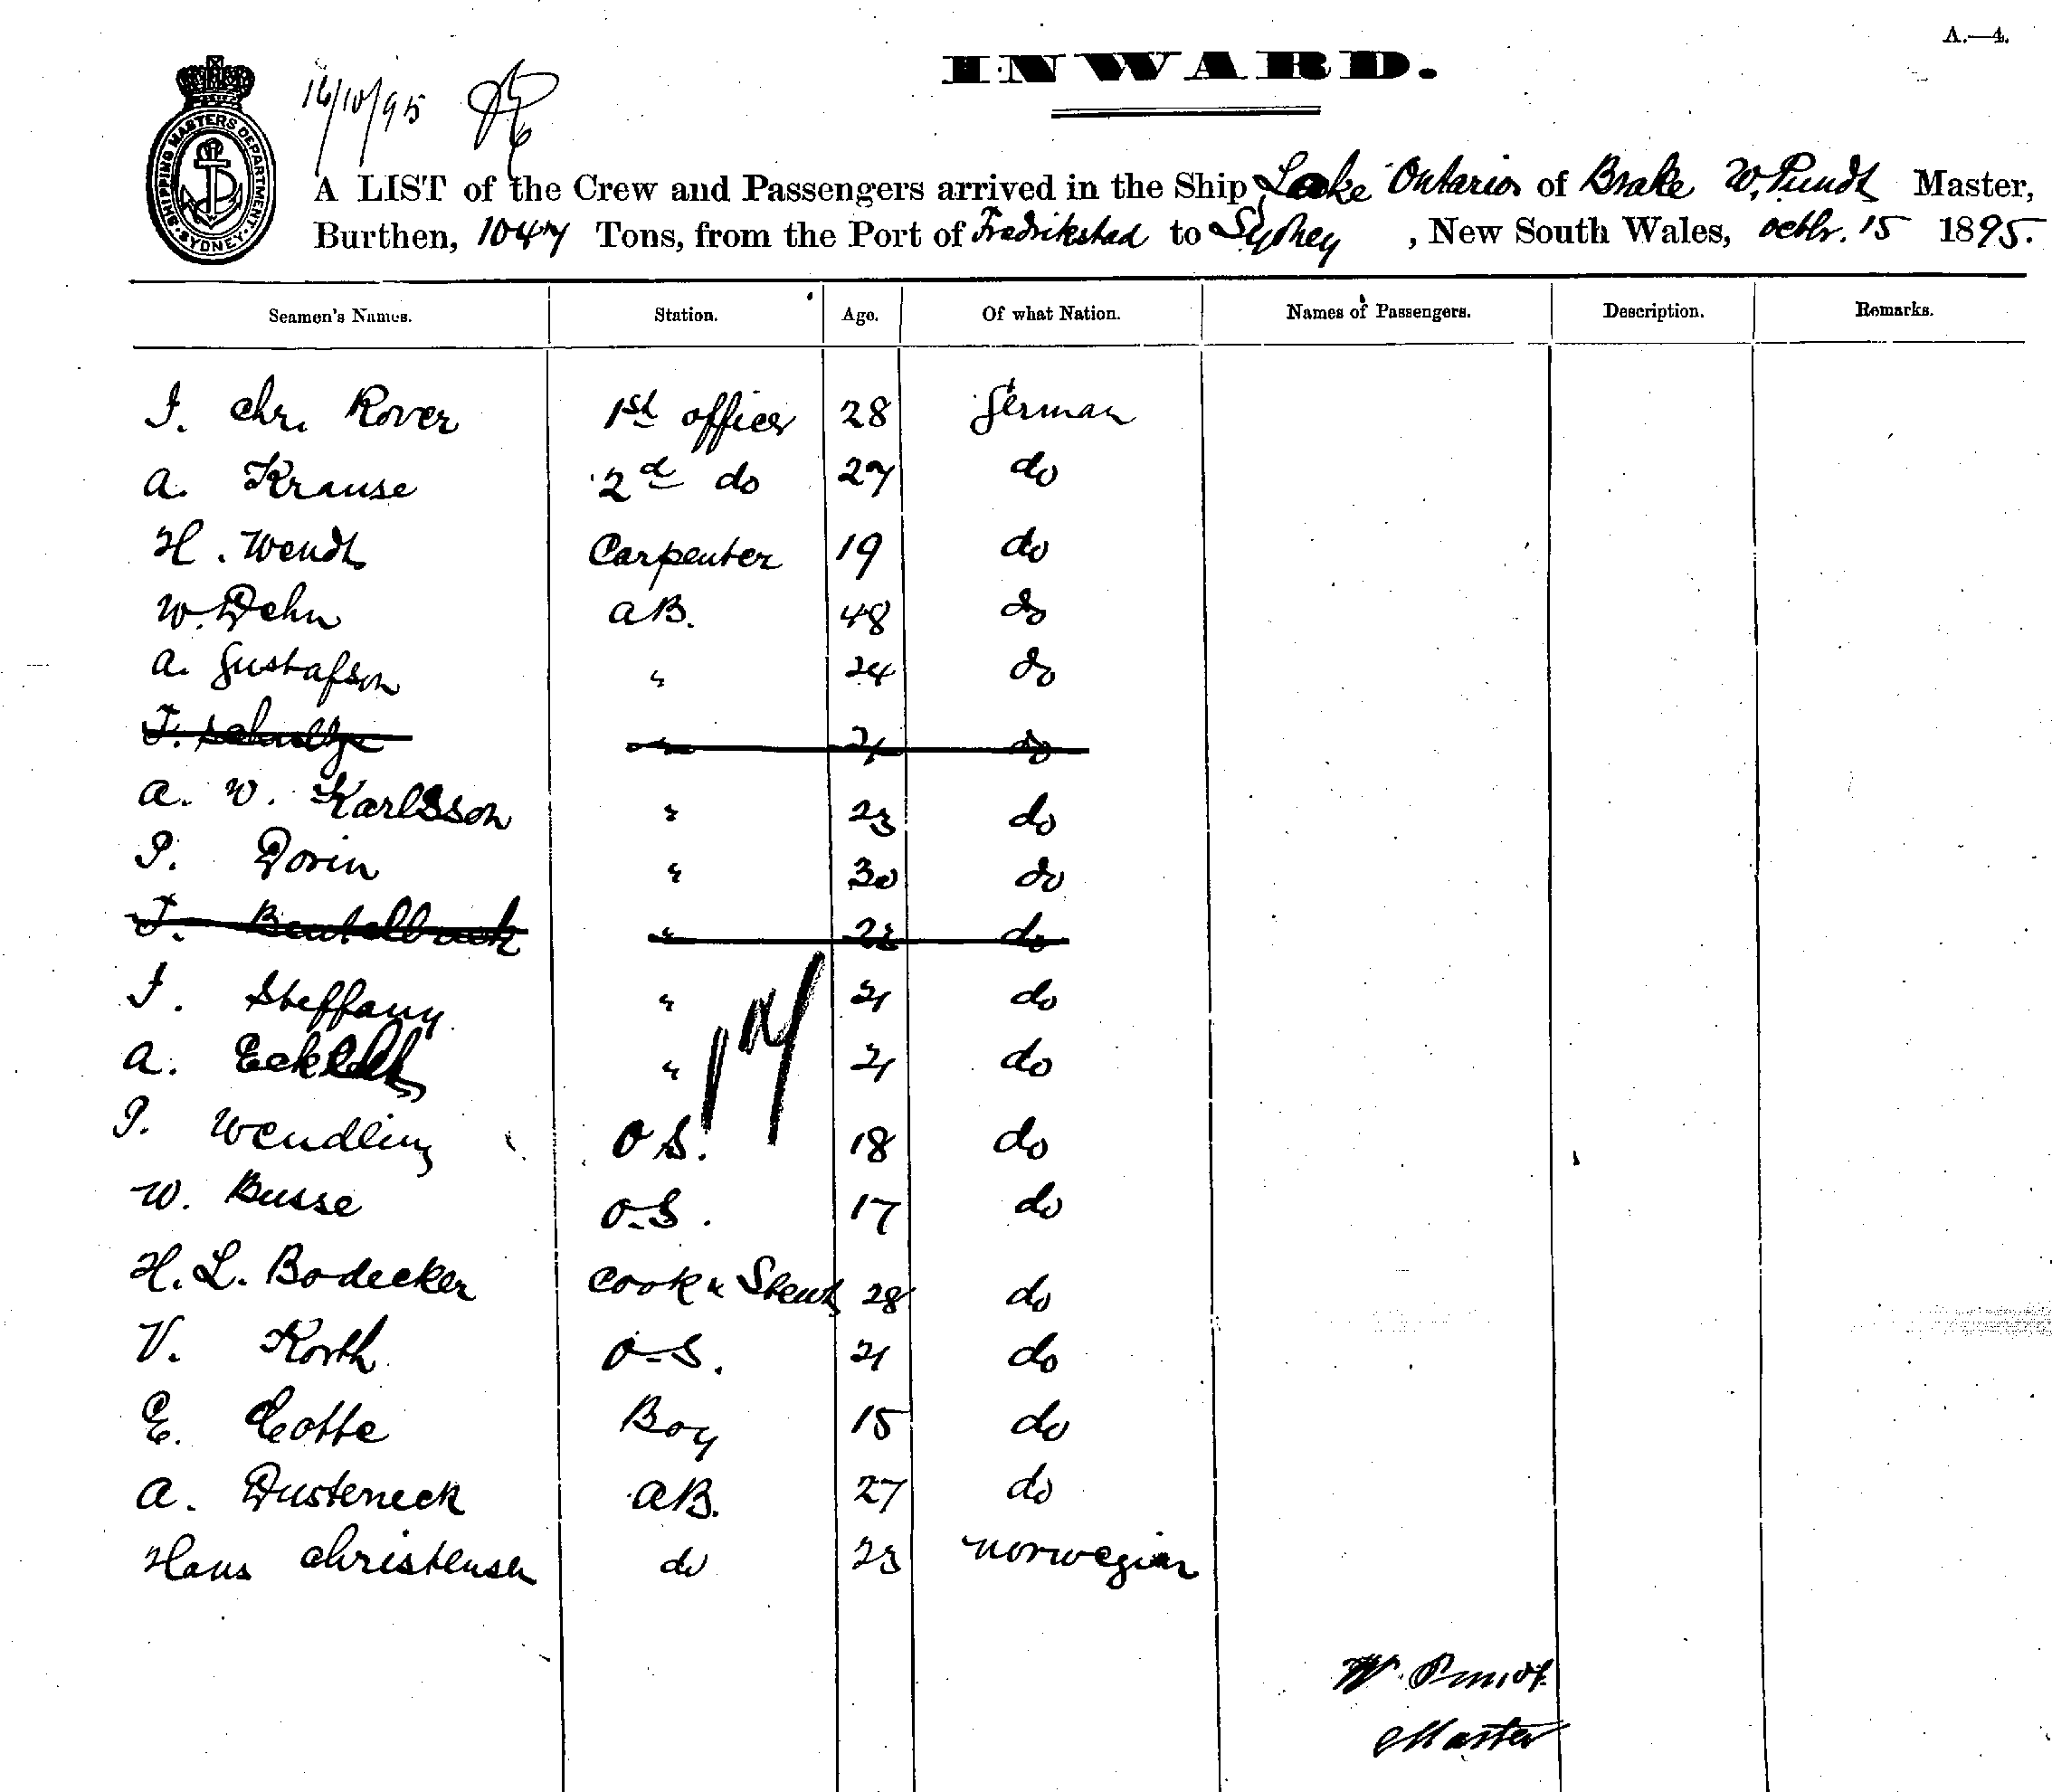 A.—4.
INWARD.
16/10/95
SHIPPING MASTERS DEPARTMENT SYDNEY
A LIST of the Crew and Passengers arrived in the Ship Lake Ontario of Brake W. Pundt Master,
Burthen, 1047 Tons, from the Port of Fredrikstad to Sydney, New South Wales, octbr. 15 1895.
Seamen's Names. Station. Age. Of what Nation. Names of Passengers. Description. Remarks.
J. Chr. Rover 1st officer 28 German
A. Krause 2d do 27 do
H. Wendt Carpenter 19 do
W. Dehn AB. 48 do
A. Gustafson " 24 do
J. Schultze " 21 do
A. W. Karlsson " 23 do
P. Dorin " 30 do
J. " do
J. Steffany " 21 do
A. " 21 do
P. Wendling O S. 18 do
W. Busse O.S. 17 do
H. L. Bodecker Cook & 28 do
V. Korth O.S. 21 do
E. Boy 15 do
A. Dusteneck AB. 27 do
Hans Christensen do 23 Norwegian
17
W. Pundt
Master